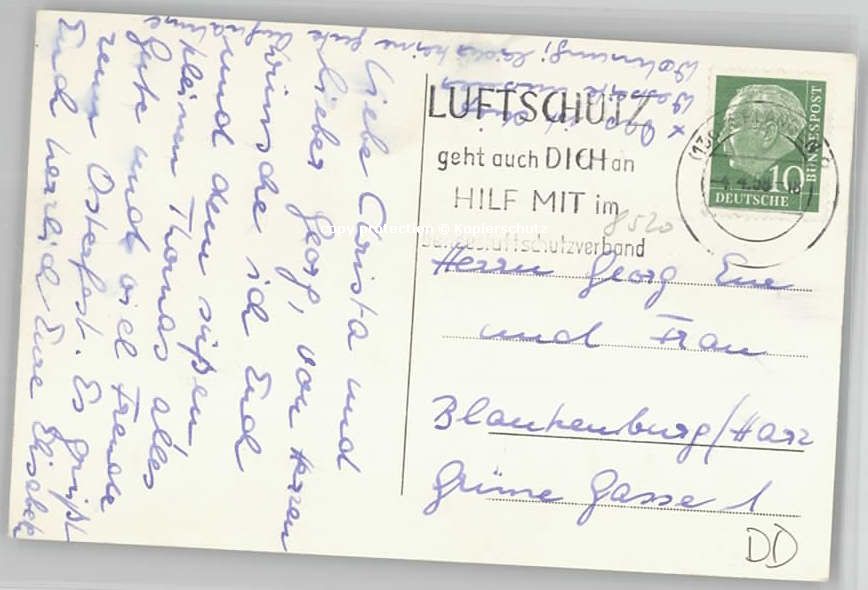 Liebe Christa und
lieber Georg, von Herzen
wünsche ich Euch
und dem süßen
kleinen Thomas alles
Gute und viel Freude
zum Osterfest. Es grüßt
Euch herzlich Eure Elisabeth
Wohnung; leider keine gute Aufnahme
LUFTSCHUTZ
geht auch DICH an
HILF MIT im
Bundesluftschutzverband
8520
DEUTSCHE
BUNDESPOST
10
copy protection © Kopierschutz
Herrn Georg
und Frau
Blankenburg/Harz
Grüne Gasse 1
DD